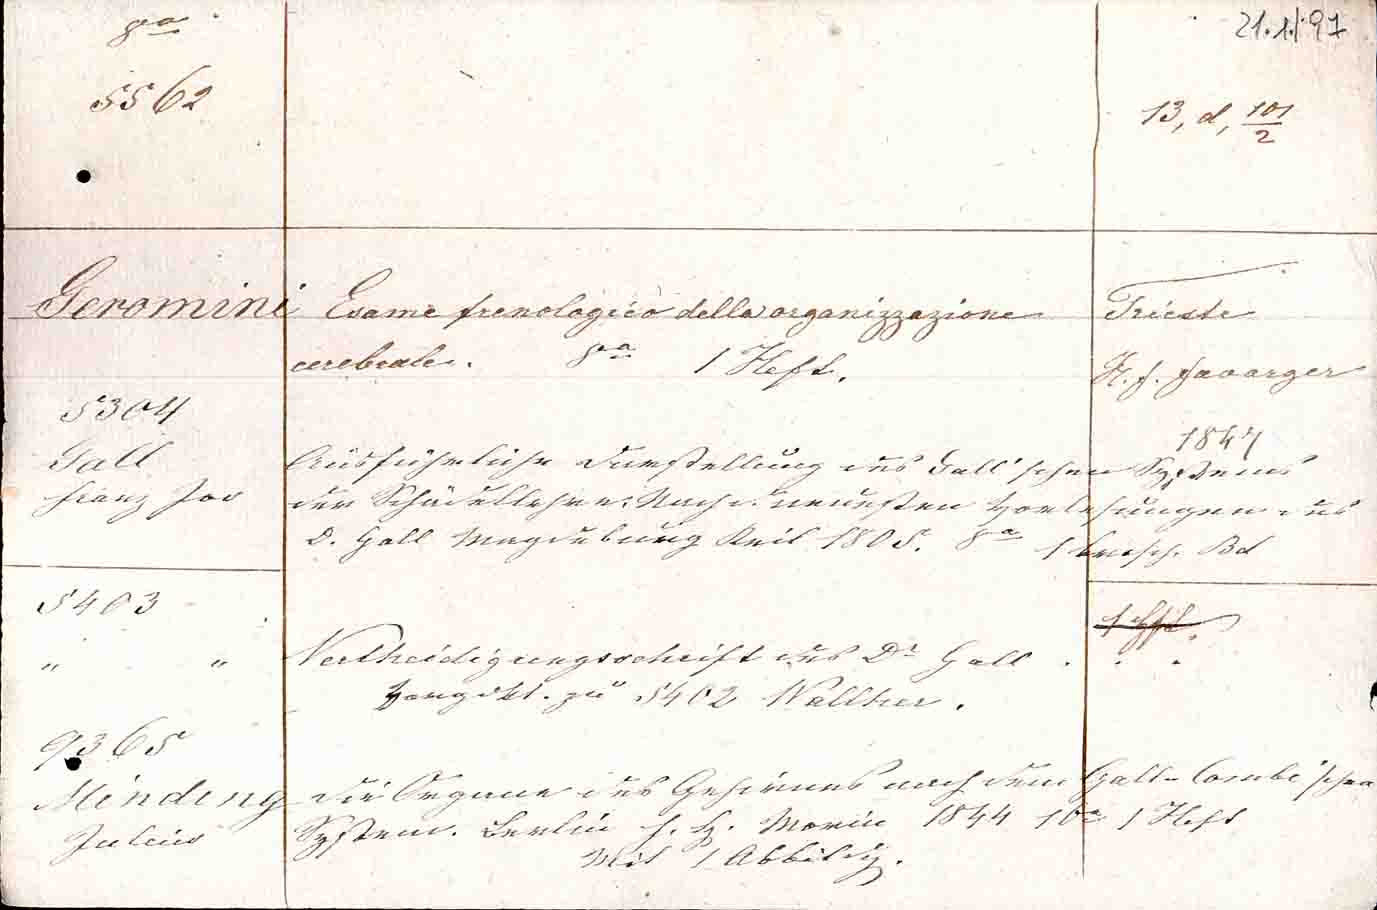 8va
21.1.97
5562
13, d, 101/2
Geromini Esame frenologico della organizzazione Trieste
cerebrale. 8va 1 Heft. H. f. Favarger
5304 1847
Gall Ausführliche Darstellung des Gall'schen Systems
Franz Jos der Schädellehre. Nach d. neuesten Vorlesungen des
D. Gall Magdeburg Keil 1805. 8va 1 brosch. Bd
5403
" " Vertheidigungsschrift des Dr Gall . . .
zu 5402 Walther.
9365
Minding die Organe des Gehirnes nach dem Gall-Combe'schen
Julius System. Berlin Morin 1844 1 Heft
Mit 1 Abbildg.